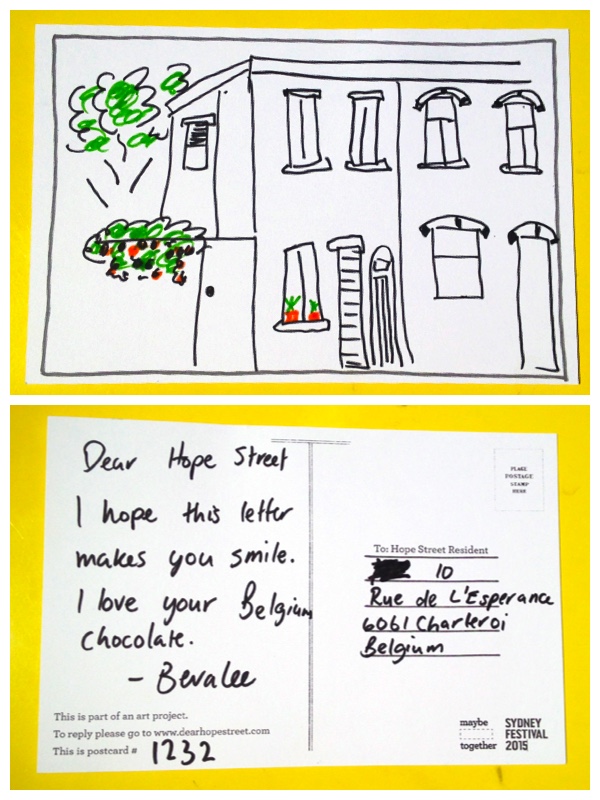 Dear Hope Street
I hope this letter
makes you smile.
I love your Belgium
chocolate.
- Bevalee
This is part of an art project.
To reply please go to www.dearhopestreet.com
This is postcard # 1232
PLACE
POSTAGE
STAMP
HERE
To: Hope Street Resident
10
Rue de L'Esperance
6061 Charleroi
Belgium
maybe
together
SYDNEY
FESTIVAL
2015